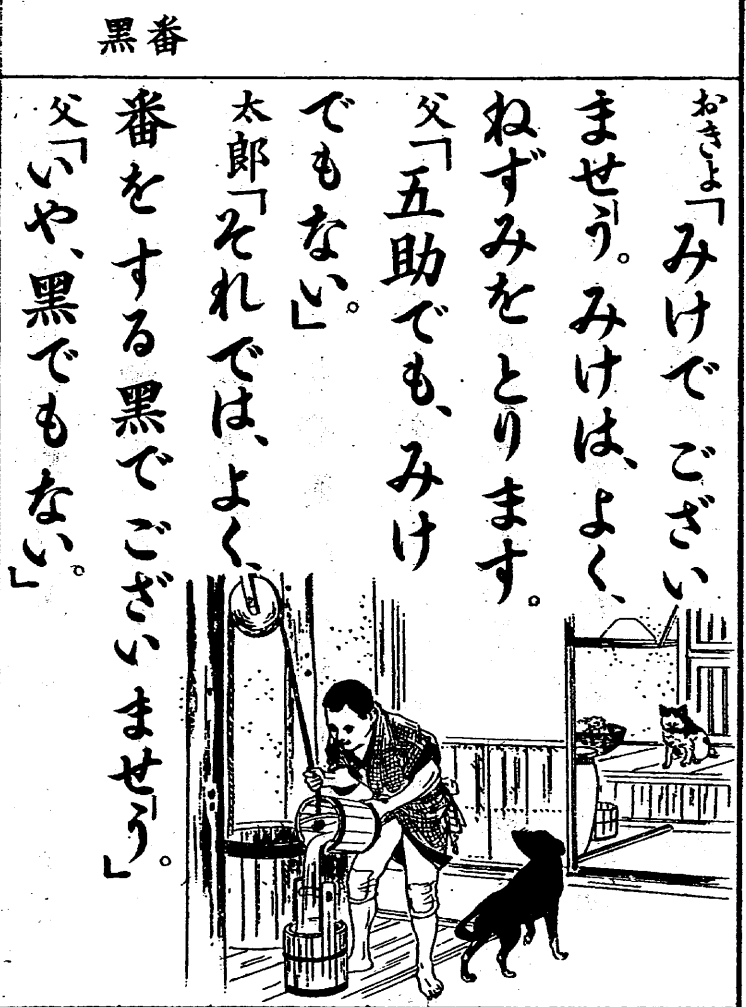 番黑
おきよ「みけで ござい
ませう。みけは、よく、
ねずみを とります。
父「五助でも、みけ
でもない。」
太郎「それでは、よく、
番を する黑で ございませう。」
父「いや、黑でも ない。」